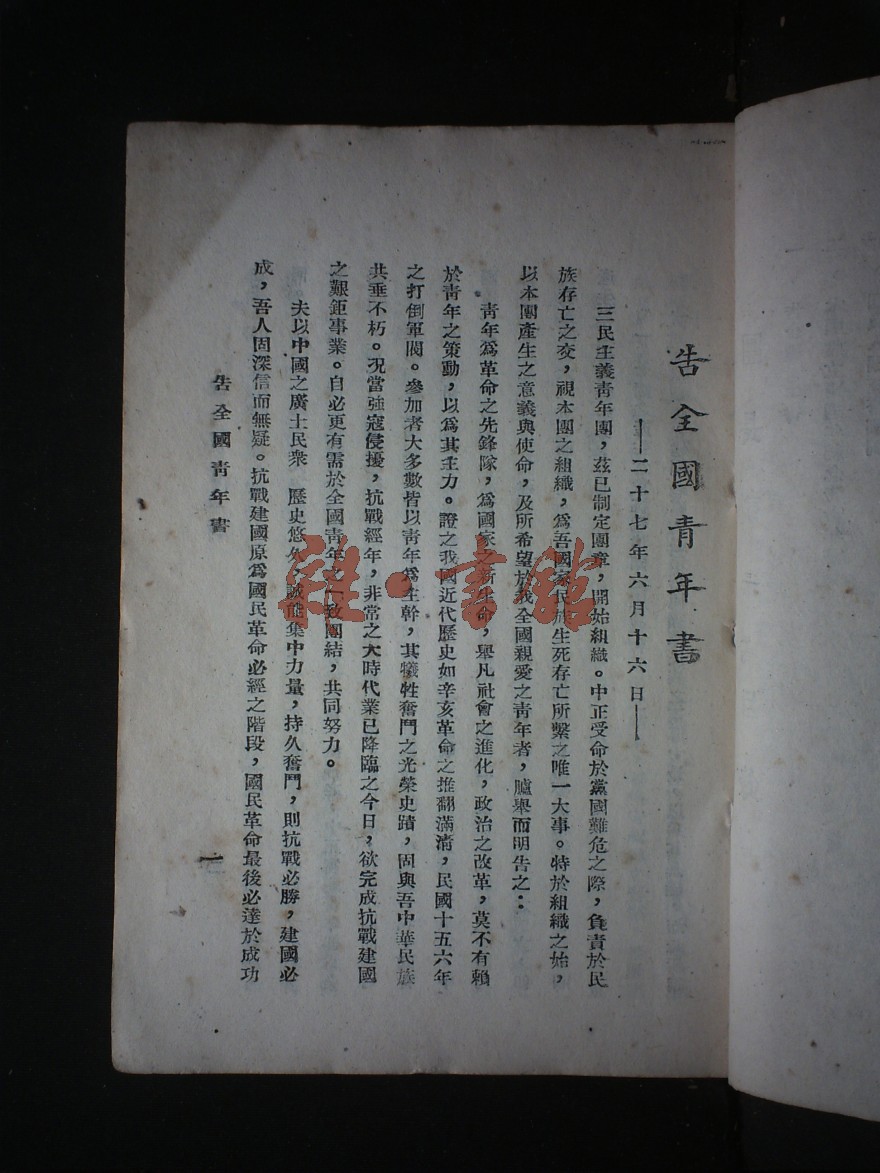 告全國青年書
——二十七年六月十六日——
三民主義青年團，茲已制定團章，開始組織。中正受命於黨國難危之際，負責於民
族存亡之交，視本團之組織，爲吾國家民族生死存亡所繫之唯一大事。特於組織之始，
以本團產生之意義與使命，及所希望於我全國親愛之青年者，臚舉而明告之：
青年爲革命之先鋒隊，爲國家之新生命，舉凡社會之進化，政治之改革，莫不有賴
於青年之策動，以爲其主力。證之我國近代歷史如辛亥革命之推翻滿清，民國十五六年
之打倒軍閥。參加者大多數皆以青年爲主幹，其犧牲奮鬥之光榮史蹟，固與吾中華民族
共垂不朽。况當強寇侵擾，抗戰經年，非常之大時代業已降臨之今日，欲完成抗戰建國
之艱鉅事業。自必更有需於全國青年之一致團結，共同努力。
夫以中國之廣土民衆 歷史悠久，誠能集中力量，持久奮鬥，則抗戰必勝，建國必
成，吾人固深信而無疑。抗戰建國原爲國民革命必經之階段，國民革命最後必達於成功
告全國青年書
一
雜·書館